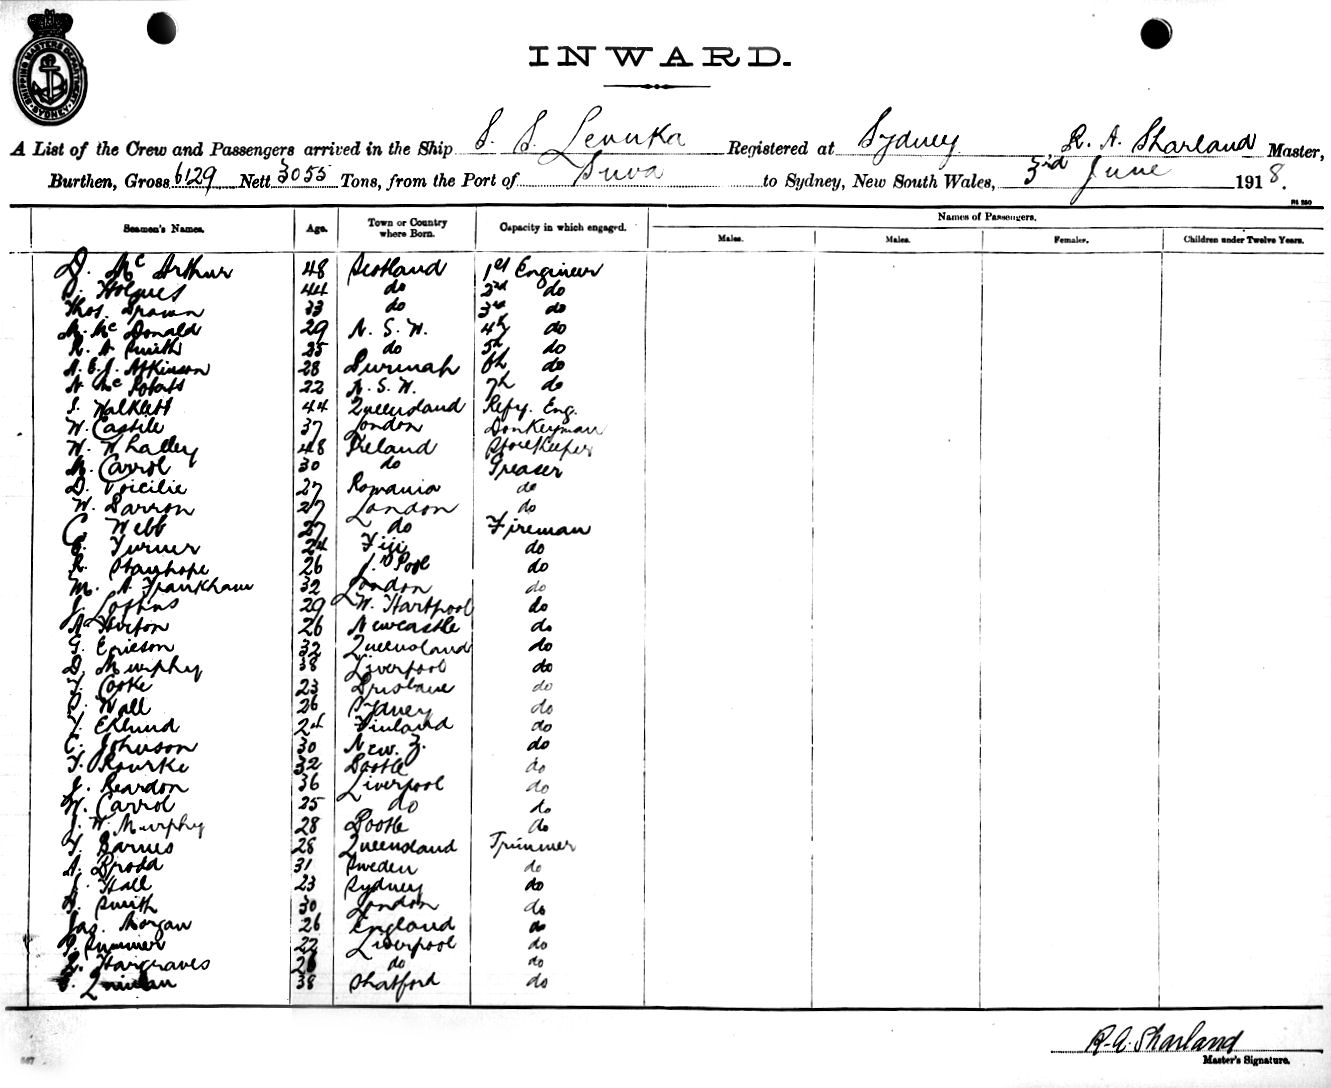 SHIPPING MASTERS DEPARTMENT SYDNEY
INWARD.
A List of the Crew and Passengers arrived in the Ship S. S. Levuka Registered at Sydney R. A. Sharland Master,
Burthen, Gross 6129 Nett 3055 Tons, from the Port of Suva to Sydney, New South Wales, 3rd June 1918.
Seamen's Names. Age. Town or Country where Born. Capacity in which engaged. Names of Passengers.
Males. Males. Females. Children under Twelve Years.
D. Mc Arthur 48 Scotland 1st Engineer
Holmes 44 do 2nd do
Thos. Brown 33 do 3rd do
M. Mc Donald 29 N. S. W. 4th do
R. A Smith 25 do 5th do
A. E. J. Atkinson 28 Burmah 6th do
N. Mc Roberts 22 N. S. W. 7th do
S. Walklett 44 Queensland Refg. Eng.
W. Castile 37 London Donkeyman
W. Whalley 48 Ireland Storekeeper
M. Carrol 30 do Greaser
D. Voicilie 27 Romania do
W. Barron 27 London do
C. Webb 27 do Fireman
Turner 24 Fiji do
R. Stanhope 26 L'Pool do
M. A Frankham 32 London do
J. Loftus 29 W. Hartpool do
A 26 Newcastle do
G. Ericson 32 Queensland do
D. Murphy 38 Liverpool do
T. Cooke 23 Brisbane do
Wall 26 Sydney do
Eklund 24 Finland do
C. Johnson 30 New. Z. do
T. Rourke 32 Bootle do
J. Reardon 36 Liverpool do
W. Carrol 25 do do
J. W. Murphy 28 Bootle do
T. Barnes 28 Queensland Trimmer
A. 31 Sweden do
Hall 23 Sydney do
Smith 30 London do
Jas. Morgan 26 England do
Summer 22 Liverpool do
Hargraves 26 do do
Quinlan 38 Shatford do
R. A. Sharland
Master's Signature.